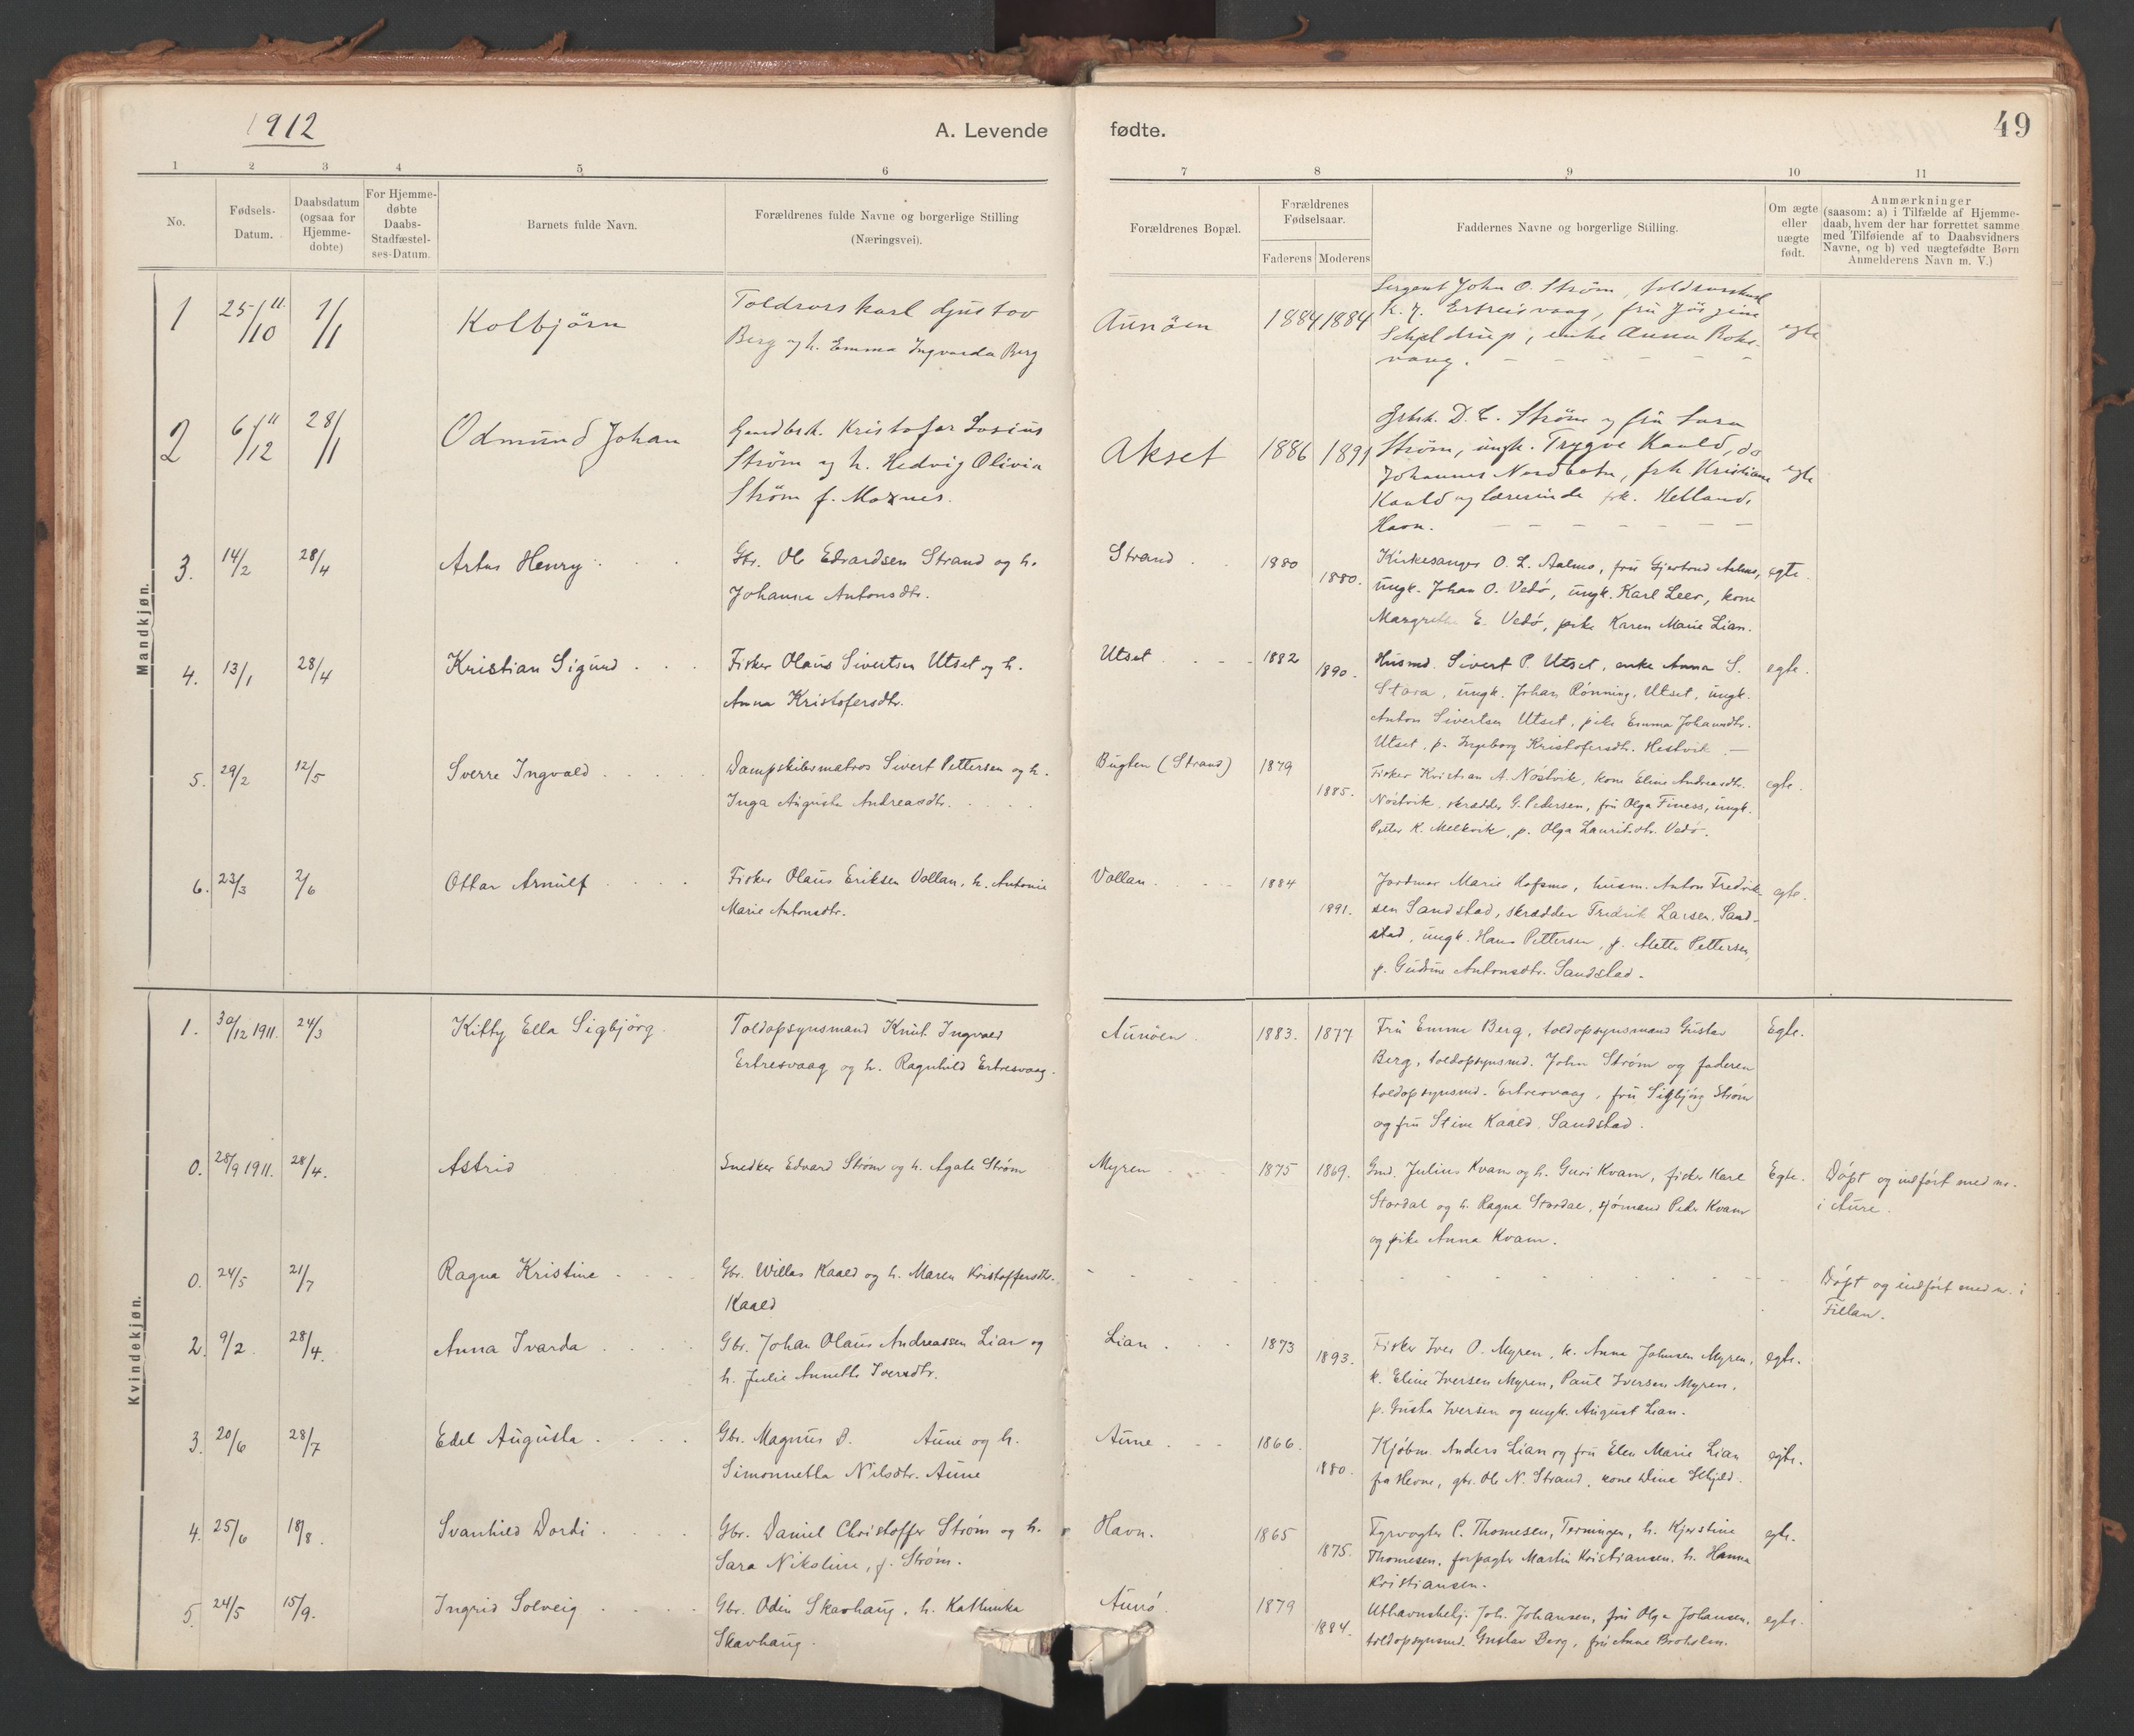 1912
A. Levende fødte.
49
1 2 3 4 5 6 7 8 9 10 11
No.
Fødsels-
Datum.
Daabsdatum
(ogsaa for
Hjemme-
døbte)
For Hjemme-
døbte
Daabs-
Stadfæstel-
ses-Datum.
Barnets fulde Navn.
Forældrenes fulde Navne og borgerlige Stilling
(Næringsvei).
Forældrenes Bopæl.
Forældrenes
Fødselsaar.
Faderens Moderens
Faddernes Navne og borgerlige Stilling.
Om ægte
eller
uægte
født.
Anmærkninger
(saasom: a) i Tilfælde af Hjemme-
daab, hvem der har forrettet samme
med Tilføiende af to Daabsvidners
Navne, og b) ved uægtefødte Børn
Anmelderens Navn m. V.)
Mandkjøn.
1 25/10 11 1/1 Kolbjörn
Toldrorskarl Gustav
Berg og h. Emma Ingvarda Berg
Aunöen 1884 1884
Sergent John O. Strøm, toldrorskarl
K. J. Ertreisvaag, fru Jörgine
Schjeldrup, enke Anna Boks-
vaag. egte
2 6/12 11 28/1 Odmund Johan
Gaardbrk. Kristofer Losius
Strøm og h. Hedvig Olivia
Strøm f. Moxnes.
Akset 1886 1891
Gbrk. D. C. Strøm og fru Sara
Strøm, ungk. Trygve Kaald, do
Johannes Nordbotn, frk Kristiane
Kaald og lærerinde frk. Helland,
Havn. egte
3. 14/2 28/4 Artur Henry
Gbr. Ole Edvardsen Strand og h.
Johanna Antonsdtr.
Strand 1880 1880.
Kirkesanger O. L. Aalmo, fru Gjertrud Aalmo,
ungk. Johan O. Vedø, ungk. Karl Leer, kone
Margrethe E. Vedø, pike Karen Marie Lian. egte.
4. 13/1 28/4 Kristian Sigurd
Fisker Olaus Sivertsen Utset og h.
Anna Kristofersdtr.
Utset 1882 1890.
Husmd. Sivert P. Utset, enke Anna S.
Stora, ungk. Johan Rønning, Utset, ungk.
Anton Sivertsen Utset, pike Emma Johansdtr.
Utset, p. Ingeborg Kristofersdtr. Hestvik. egte.
5. 29/2 12/5 Sverre Ingvald
Dampskibsmatros Sivert Pettersen og h.
Inga Augusta Andreasdtr.
Bugten (Strand) 1879 1885.
Fisker Kristian A. Nøstvik, kone Eline Andreasdtr.
Nøstvik, skrædder G. Pedersen, fru Olga Finess, ungk.
Petter K. Melkvik, p. Olga Lauritsdtr. Vedø. egte.
6. 23/3 2/6 Ottar Arnulf
Fisker Olaus Eriksen Vollan, h. Antonie
Marie Antonsdtr.
Vollan 1884 1891.
Jordmor Marie Hofsmo, husm. Anton Fredrik-
sen Sandstad, skrædder Fredrik Larsen, Sand-
stad, ungk. Hans Pettersen, p. Mette Pettersen,
p. Gudrun Antonsdtr. Sandstad. egte.
Kvindekjøn.
1. 30/12 1911. 24/3 Kitty Ella Sigbjörg
Toldopsynsmand Knut Ingvald
Ertresvaag og h. Ragnhild Ertresvaag.
Aunöen. 1883. 1877
Fru Emma Berg, toldopsynsmand Gustav
Berg, toldopsynsmd. John Strøm og faderen
toldopsynsmd. Ertresvaag, fru Sigbjörg Strøm
og fru Stine Kaald, Sandstad. Egte.
0. 28/9 1911. 28/4. Astrid
Snedker Edvard Strøm og h. Agate Strøm
Myren 1875 1869.
Gmd. Julius Kvam og h. Guri Kvam, fisker Karl
Stordal og h. Ragna Stordal, sjømand Peder Kvam
og pike Anna Kvam. Egte.
Døpt og indført med nr.
i Aure.
0. 24/5 21/7 Ragna Kristine
Gbr. Willas Kaald og h. Maren Kristoffersdtr.
Kaald
Døpt og indført med nr. i
Fillan.
2. 9/2 28/4. Anna Ivarda
Gbr. Johan Olaus Andreassen Lian og
h. Julie Annette Iversdtr.
Lian 1873 1893.
Fisker Iver O. Myren, k. Anna Johnsen Myren,
k. Eline Iversen Myren, Paul Iversen Myren,
p. Gusta Iversen og ungk. August Lian. egte.
3. 20/6 28/7 Edel Augusta
Gbr. Magnus B. Aune og h.
Simonnetta Nilsdtr. Aune
Aune 1866. 1880.
Kjøbm. Anders Lian og fru Elen Marie Lian
fra Hevne, gbr. Ole N. Strand, kone Dina Selfjeld. egte.
4. 25/6 18/8. Svanhild Dordi
Gbr. Daniel Christoffer Strøm og h.
Sara Nikoline, f. Strøm.
Havn. 1865 1875.
Fyrvogter C. Thomesen, Terningen, h. Kjerstine
Thomesen, forpagter Martin Kristiansen, h. Hanna
Kristiansen. egte.
5. 24/5 15/9. Ingrid Solveig
Gbr. Odin Skavhaug, h. Kathinka
Skavhaug.
Aunø. 1879 1884.
Uthavnshelj. Joh. Johansen, fru Olga Johansen,
toldopsynsmd. Gustav Berg, fru Anne Broholm. egte.